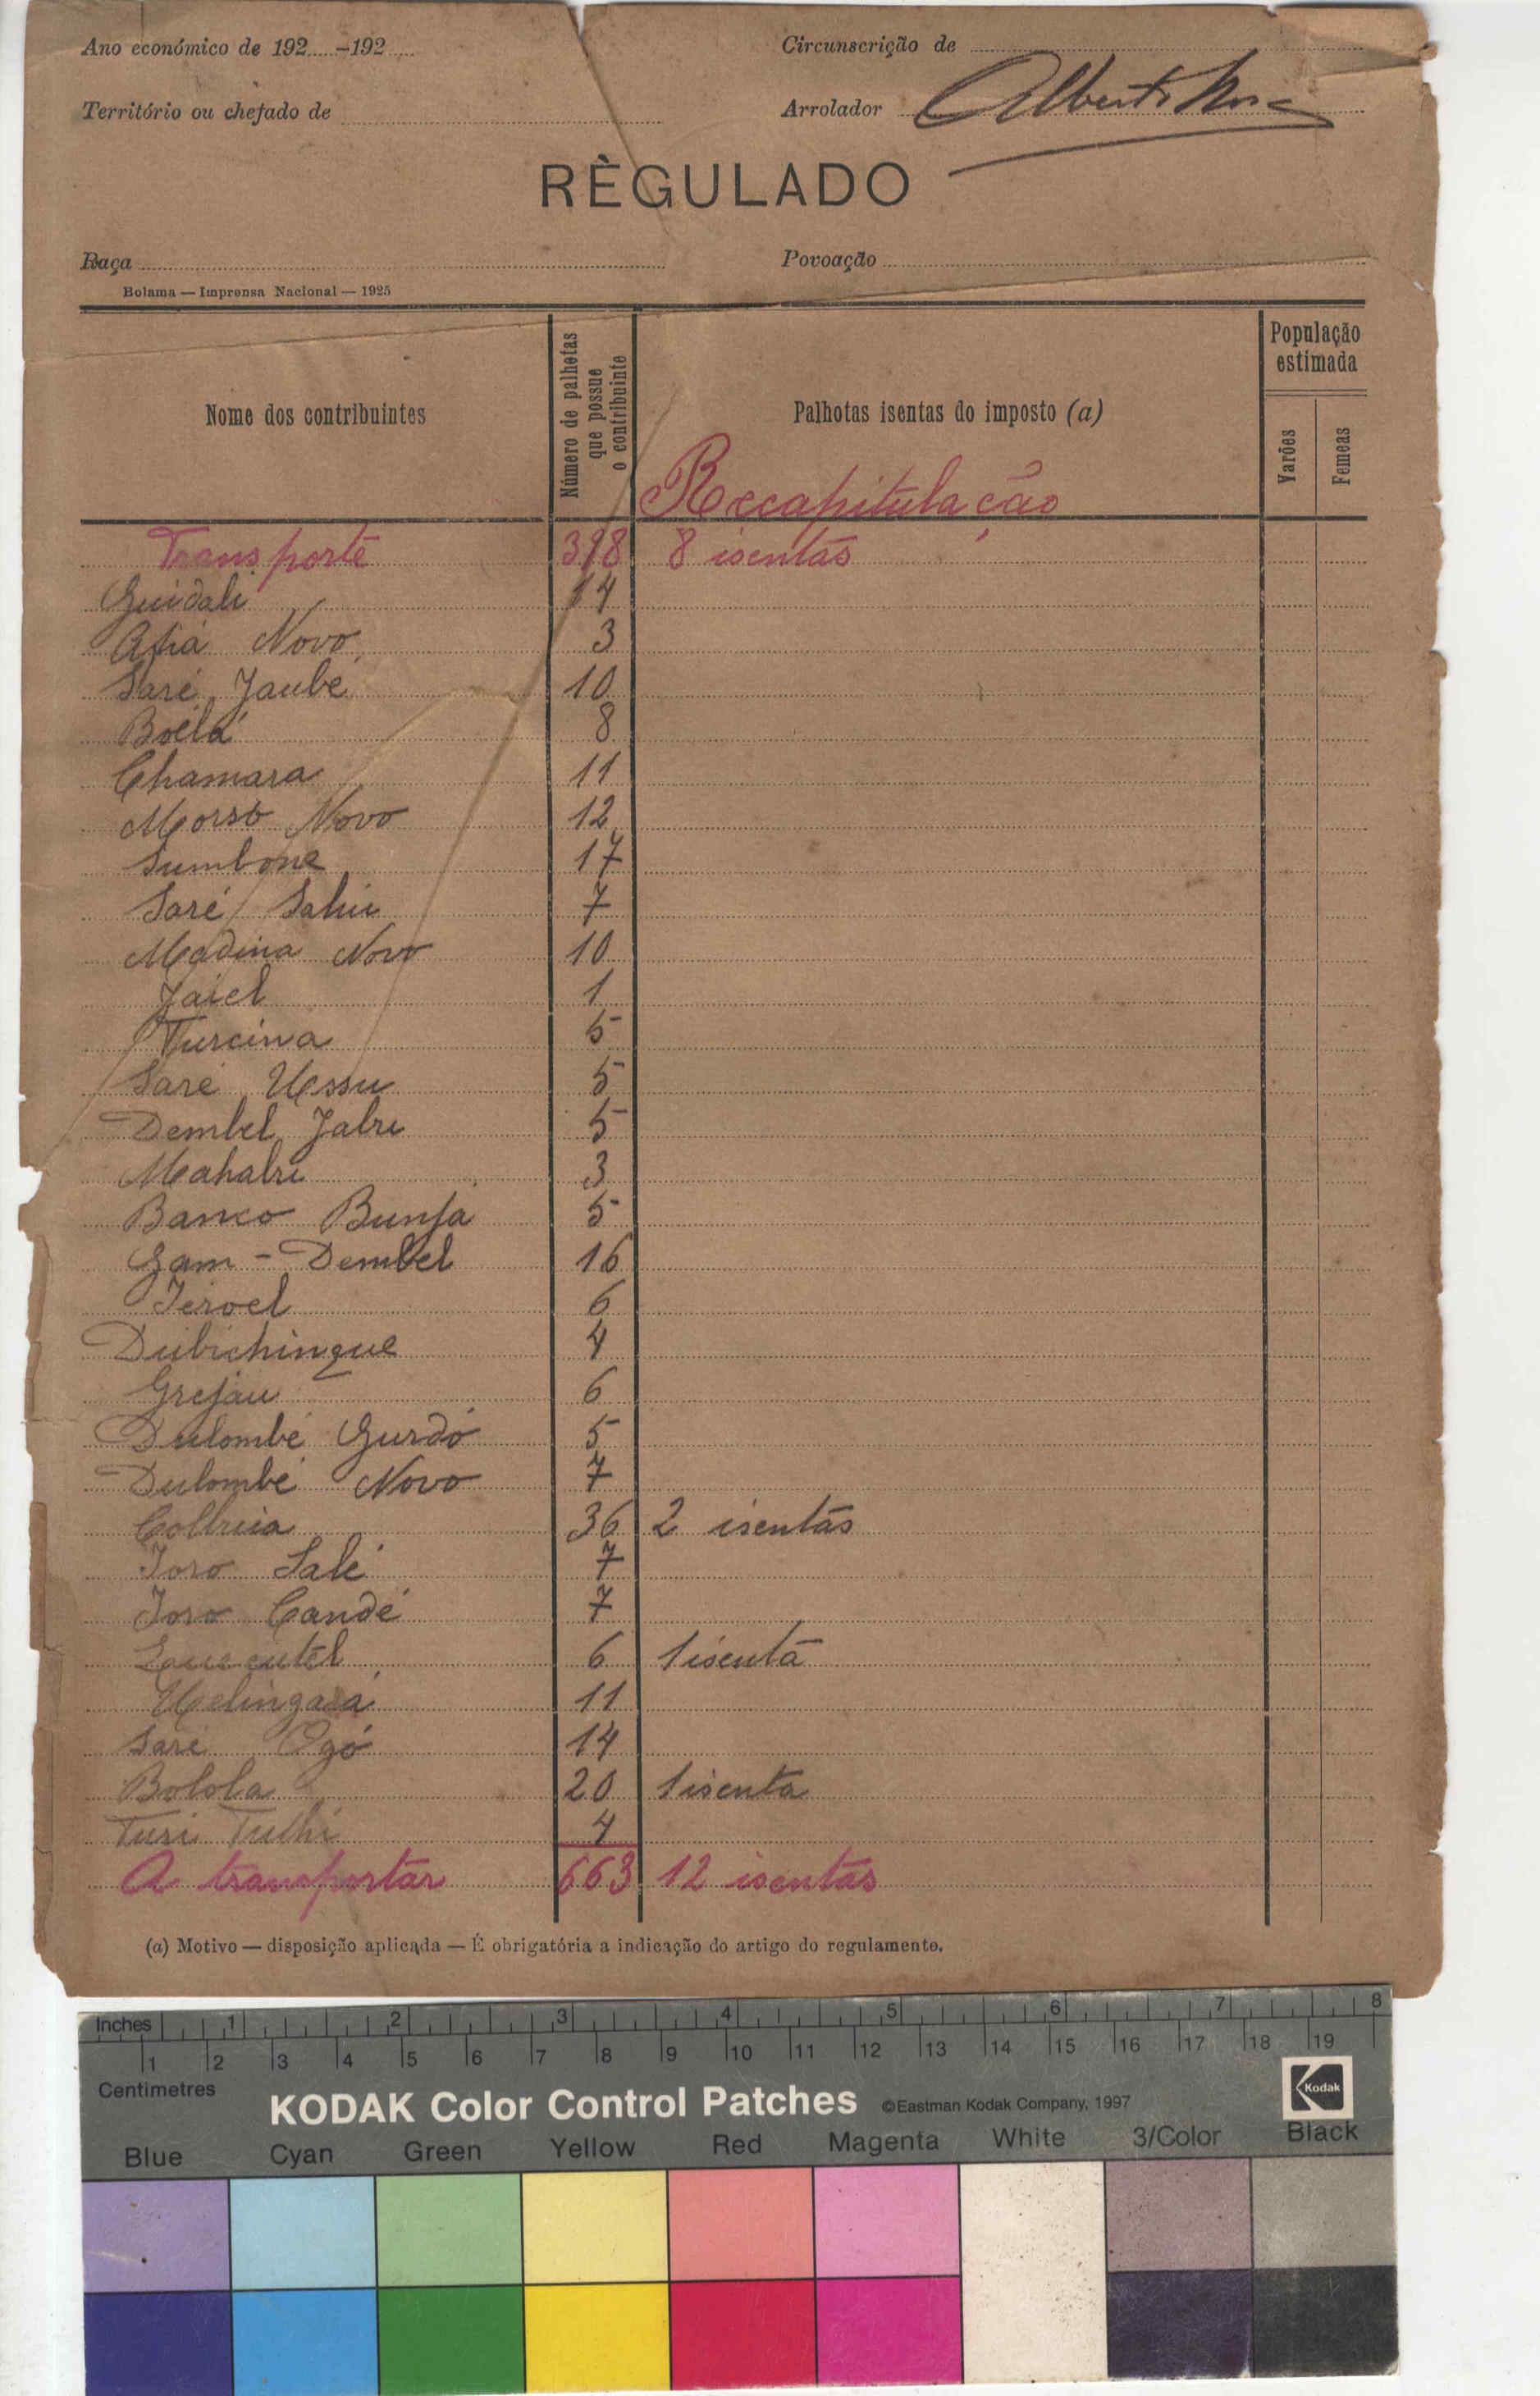 Ano económico de 192.....-192.....
Circunscrição de
Território ou chefado de
Arrolador Alberto
RÈGULADO
Raça
Povoação
Bolama — Imprensa Nacional — 1925
Nome dos contribuintes
Número de palhotas que possue o contribuinte
Palhotas isentas do imposto (a)
População estimada
Varões
Femeas
Recapitulação
Transporte 398 8 isentas
Guidali 14
Afiá Novo 3
Saré Jaube 10
Boélá 8
Chamara 11
Morso Novo 12
Sumbone 17
Saré Saliu 7
Madina Novo 10
Jaiel 1
Turcina 5
Saré Ussu 5
Dembel Jabri 5
Mahabri 3
Banco Bunja 5
Gam - Dembel 16
Jeroel 6
Dubichingue 4
Grejau 6
Dulombé Gurdó 5
Dulombé Novo 7
Colbuia 36 2 isentas
Joro Salé 7
Joro Candé 7
6 1 isenta
Uelingará 11
Saré Ogó 14
Bolola 20 1 isenta
Turi Tulhi 4
A transportar 663 12 isentas
(a) Motivo — disposição aplicada — É obrigatória a indicação do artigo do regulamento.
Inches 1 2 3 4 5 6 7 8
1 2 3 4 5 6 7 8 9 10 11 12 13 14 15 16 17 18 19
Centimetres
KODAK Color Control Patches ©Eastman Kodak Company, 1997 Kodak
Blue Cyan Green Yellow Red Magenta White 3/Color Black